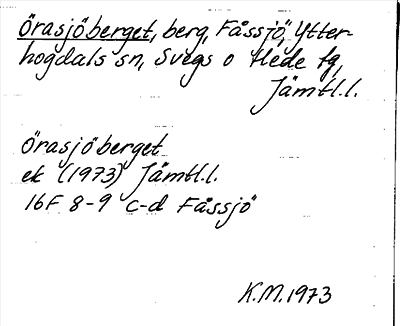 Örasjöberget, berg, Fåssjö, Ytter-
hogdals sn, Svegs o Hede tg,
Jämtl.l.
Örasjöberget
ek (1973) Jämtl.l.
16F 8-9 c-d Fåssjö
K.M.1973